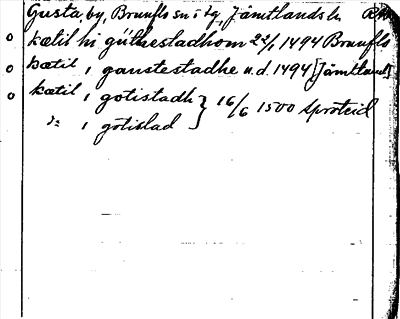 Gusta, by, Brunflo sn o tg, Jämtlands l.
kætil hi güthestadhom 22/1 1494 Brunflo
kætil i ganstestadhe u.d. 1494 [Jämtland]
kætil i gotistadh } 16/6 1500 Sproteid
i gotistad